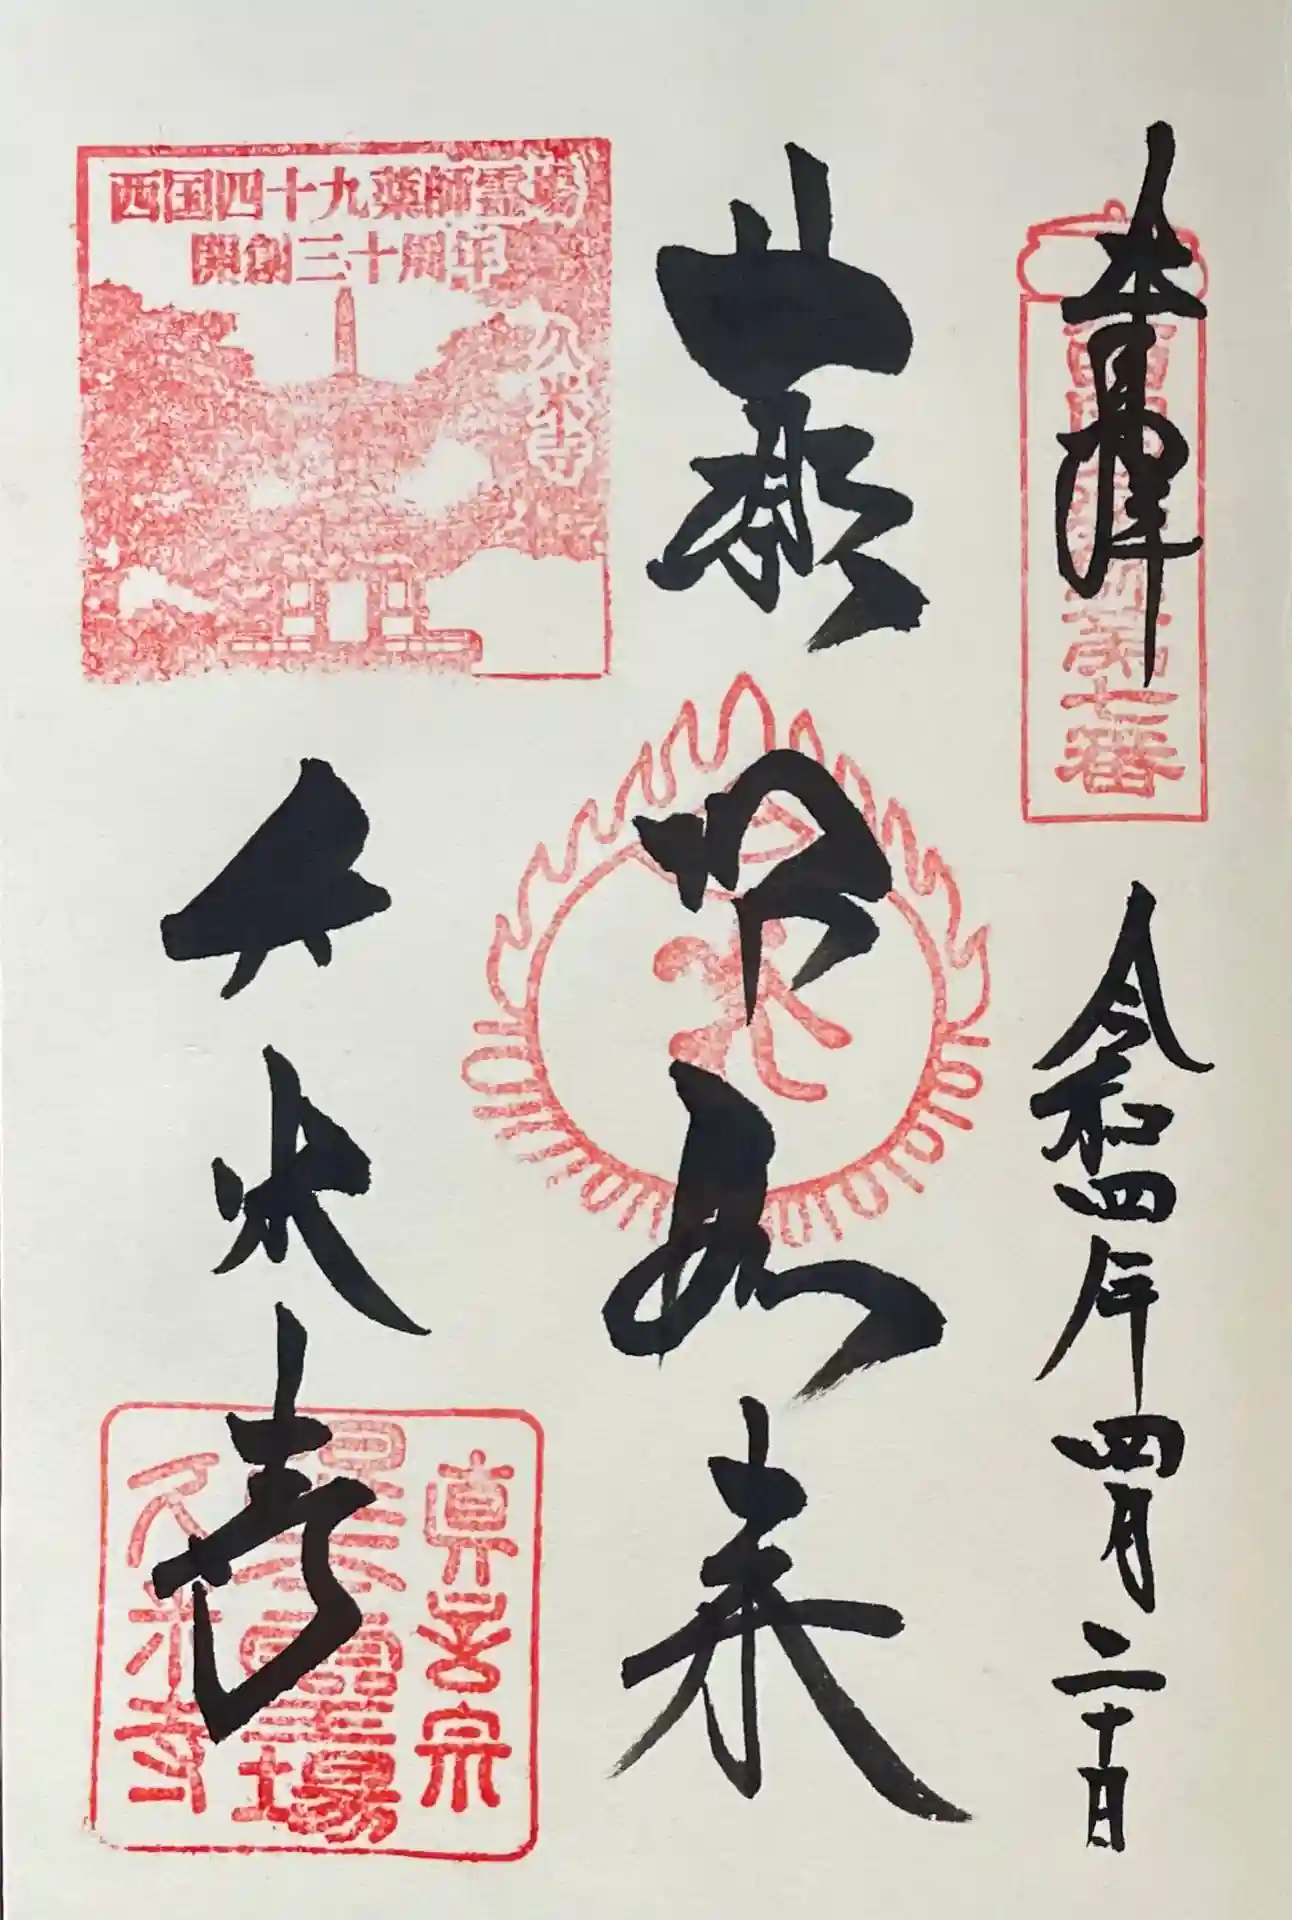 本尊
令和四年四月二十日
薬師如来
久米寺
西国薬師第七番
西国四十九薬師霊場
開創三十周年
久米寺
眞言宗
霊場
久米寺